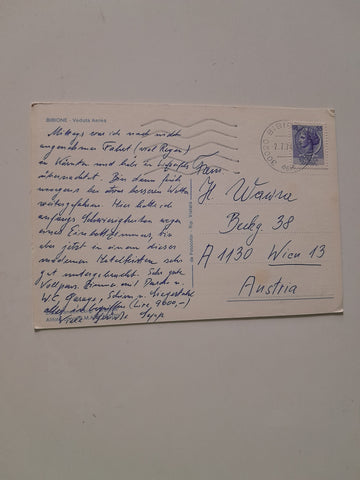 BIBIONE - Veduta Aerea
Mittags war ich nach nicht
angenehmer Fahrt (viel Regen)
in Kärnten und habe in
übernachtet. Bin dann früh
morgens bei etwas besserem Wetter
weitergefahren. Hier hatte ich
anfangs Schwierigkeiten wegen
eines Einbettzimmers, bin
aber jetzt in einem dieser
modernen Hotelkästen sehr
gut untergebracht. Sehr gute
Vollpens. Zimmer mit Dusche u.
W.C., Garage, Schirm u. Liegestuhl
alles inbegriffen (Lire 9600,-)
Viele Sepp
30020 BIBIONE
Frau
H. Wawra
Beckg. 38
A 1130 Wien 13
Austria